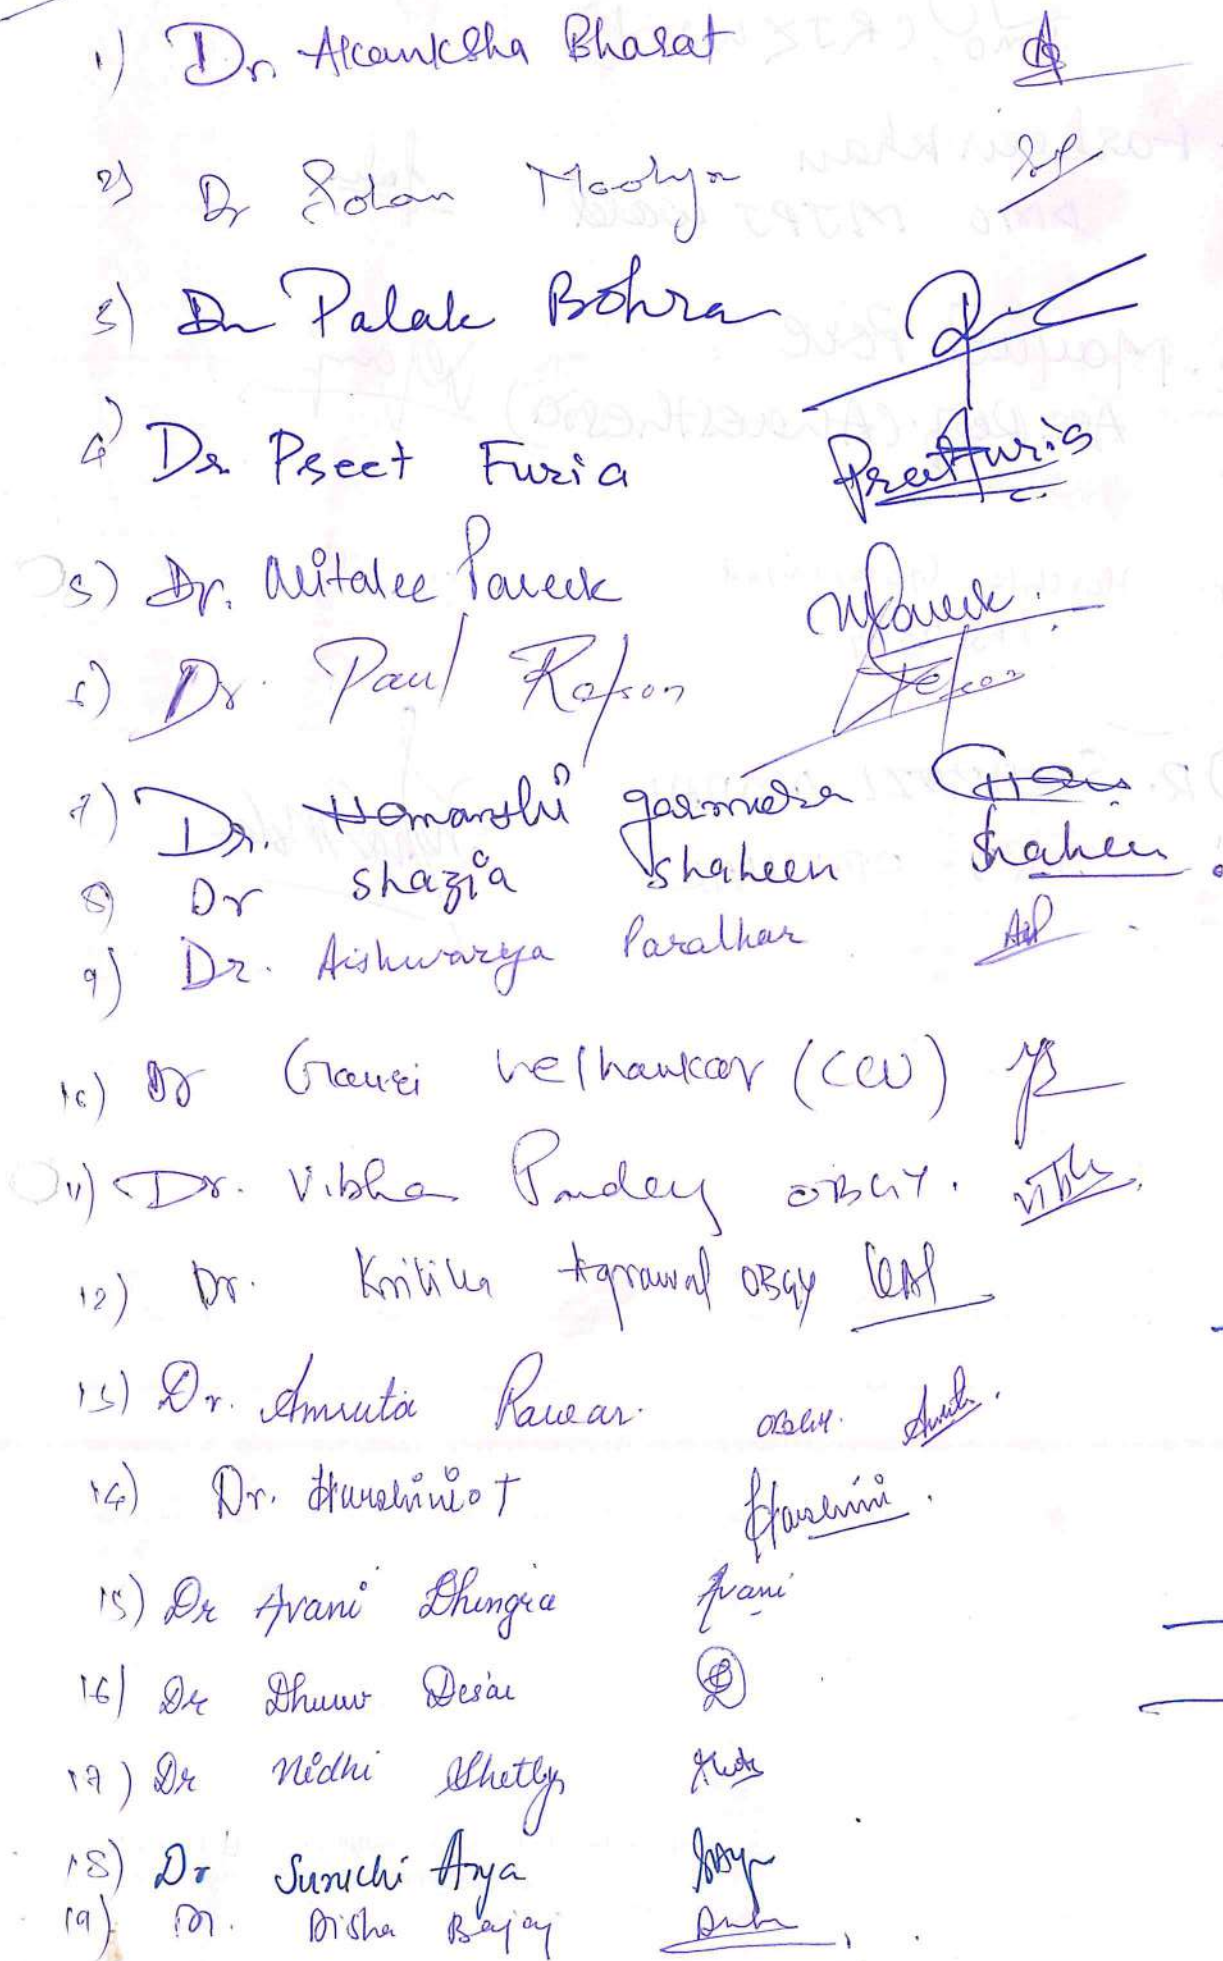 1) Dr. Akanksha Bharat
2) Dr Sohan Moolya
3) Dr Palak Bohra
4) Dr Preet Furia PreetFuria
5) Dr. Mitalee Pareek MPareek.
6) Dr. Paul Rofson
7) Dr. Hemanshi
8) Dr Shazia Shaheen Shaheen
9) Dr. Aishwarya Paralkar AP
10) Dr Gauri Velhankar (CCU)
11) Dr. Vibha Pandey OBGY.
12) Dr. Kritika Agrawal OBGY KAP
13) Dr. Amruta Pawar. OBGY. Amruta.
14) Dr. Harshini T Harshini.
15) Dr Avani Dhingra Avani
16) Dr Dhruv Desai D
17) Dr Nidhi Shetty
18) Dr Suruchi Arya
19) Dr. Disha Bajaj